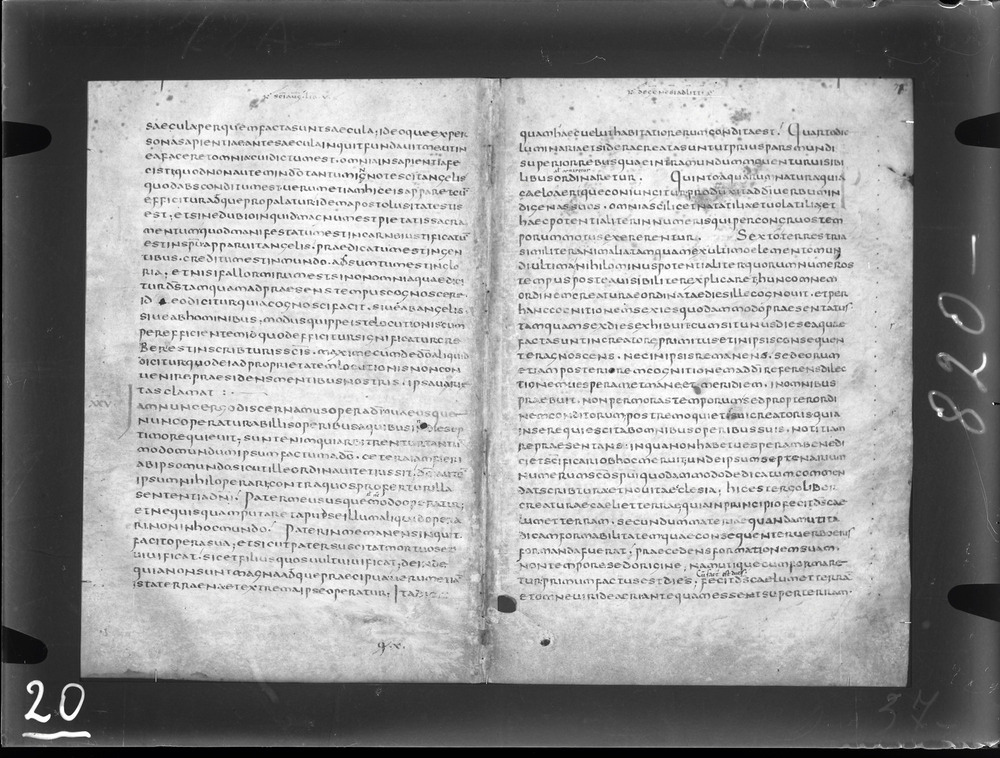 saeculaperquemfactasuntsaecula; ideoqueexper
sonasapientiaeantesaeculainquitfundauitmeetin
eafacereomniacuidictumest. omniainsapientiafe
cisti
quodabsconditumest
efficitur propalaturidemapostolusitatestis
est, etsinedubioinquidmagnumestpietatissacra
mentumquodmanifestatumestincarneiustificatū
estinspūapparuitangelis. praedicatumestingen
tibus. creditumestinmundo. adsumtumestinglo
ria, etnisifallormirumestsinonomniaquaedici
turdstamquamadpraesenstempuscognoscere,
id eodiciturquiacognoscifacit. siueabangelis
siueabhominibus, modusquippeistelocutioniscum
perefficientemidquodefficitursignificaturcre
berestinscripturisscis. maximecumdedōaliquid
diciturquodeiadproprietatemlocutionisnoncon
uenirepraesidensmentibusnostris. ipsaueri
tasclamat :
XXV
amnuncergodiscernamusoperadiquaeusque
nuncoperaturabillisoperibusaquibus
timorequieuit; suntenimquiarbitrenturtantū
modomundumipsumfactumadō. ceteraiamfieri
abipsomundosicutilleordinauitetiussit. dm autē
ipsumnihiloperari; contraquosproferturilla
sententiadni. Patermeususquemodooperatur;
etnequisquamputaretapudseillumaliquidopera
rinoninhocmundo. Paterinmemanensinquit
facitoperasua, etsicutpatersuscitatmortuoset
uiuificat. sicetfiliusquosuultuiuificat, deinde
quianonsuntmagnaadquepraecipuauerumetiā
istaterrenaetextremaipseoperatur; Ita
q. x.
quamhaecueluthabitatiorerumconditaest. Quartodie
luminariaetsideracreatasuntutpriusparsmundi
superiorrebusquaeintramundummouenturuisibi
libusordinaretur. Quintoaquarumnaturaquia
caeloaerique
digenassuos. omniascilicetnatatiliaetuolatiliaet
haecpotentialiterinnumerisquipercongruostem
porummotusexererentur. Sextoterrestria
similiteranimaliatamquamexultimoelementomun
diultimanihilominuspotentialiterquorumnumeros
tempuspostea uisibiliterexplicaret. huncomnem
ordinemcreaturaeordinataediesillecognouit. etper
hanccognitionemsexiesquodammodopraesentatus
tamquamsexdiesexhibuitcumsitunusdieseaquae
factasuntincreatoreprimitusetinipsisconsequen
teragnoscens. necinipsisremanens. sedeorum
etiamposterioremcognitionemaddireferensdilec
tionemuesperametmaneetmeridiem. inomnibus
praebuit. nonpermorastemporumsedpropterordi
nemconditorumpostremoquietēsuicreatorisquia
inserequiescitabomnibusoperibussuis. notitiam
repraesentans; inquanonhabetuesperambenedi
cietscificariobhocmeruit; undeipsumseptenarium
numerumscospuiquodammododedicatumcommen
datscripturaetnouitaeclesia; hicestergoliber
creaturaecaelietterraequiainprincipiofecitdscae
lumetterram. secundummateriaequandam
dicamformabilitatemquaeconsequenteruerboeius
formandafuerat, praecedensformationemsuam.
nontemporesedorigine, namutiquecumformare
turprimumfactusestdies. fecitdscaelumetterrā
etomneuirideagriantequamessentsuperterram.
820
20